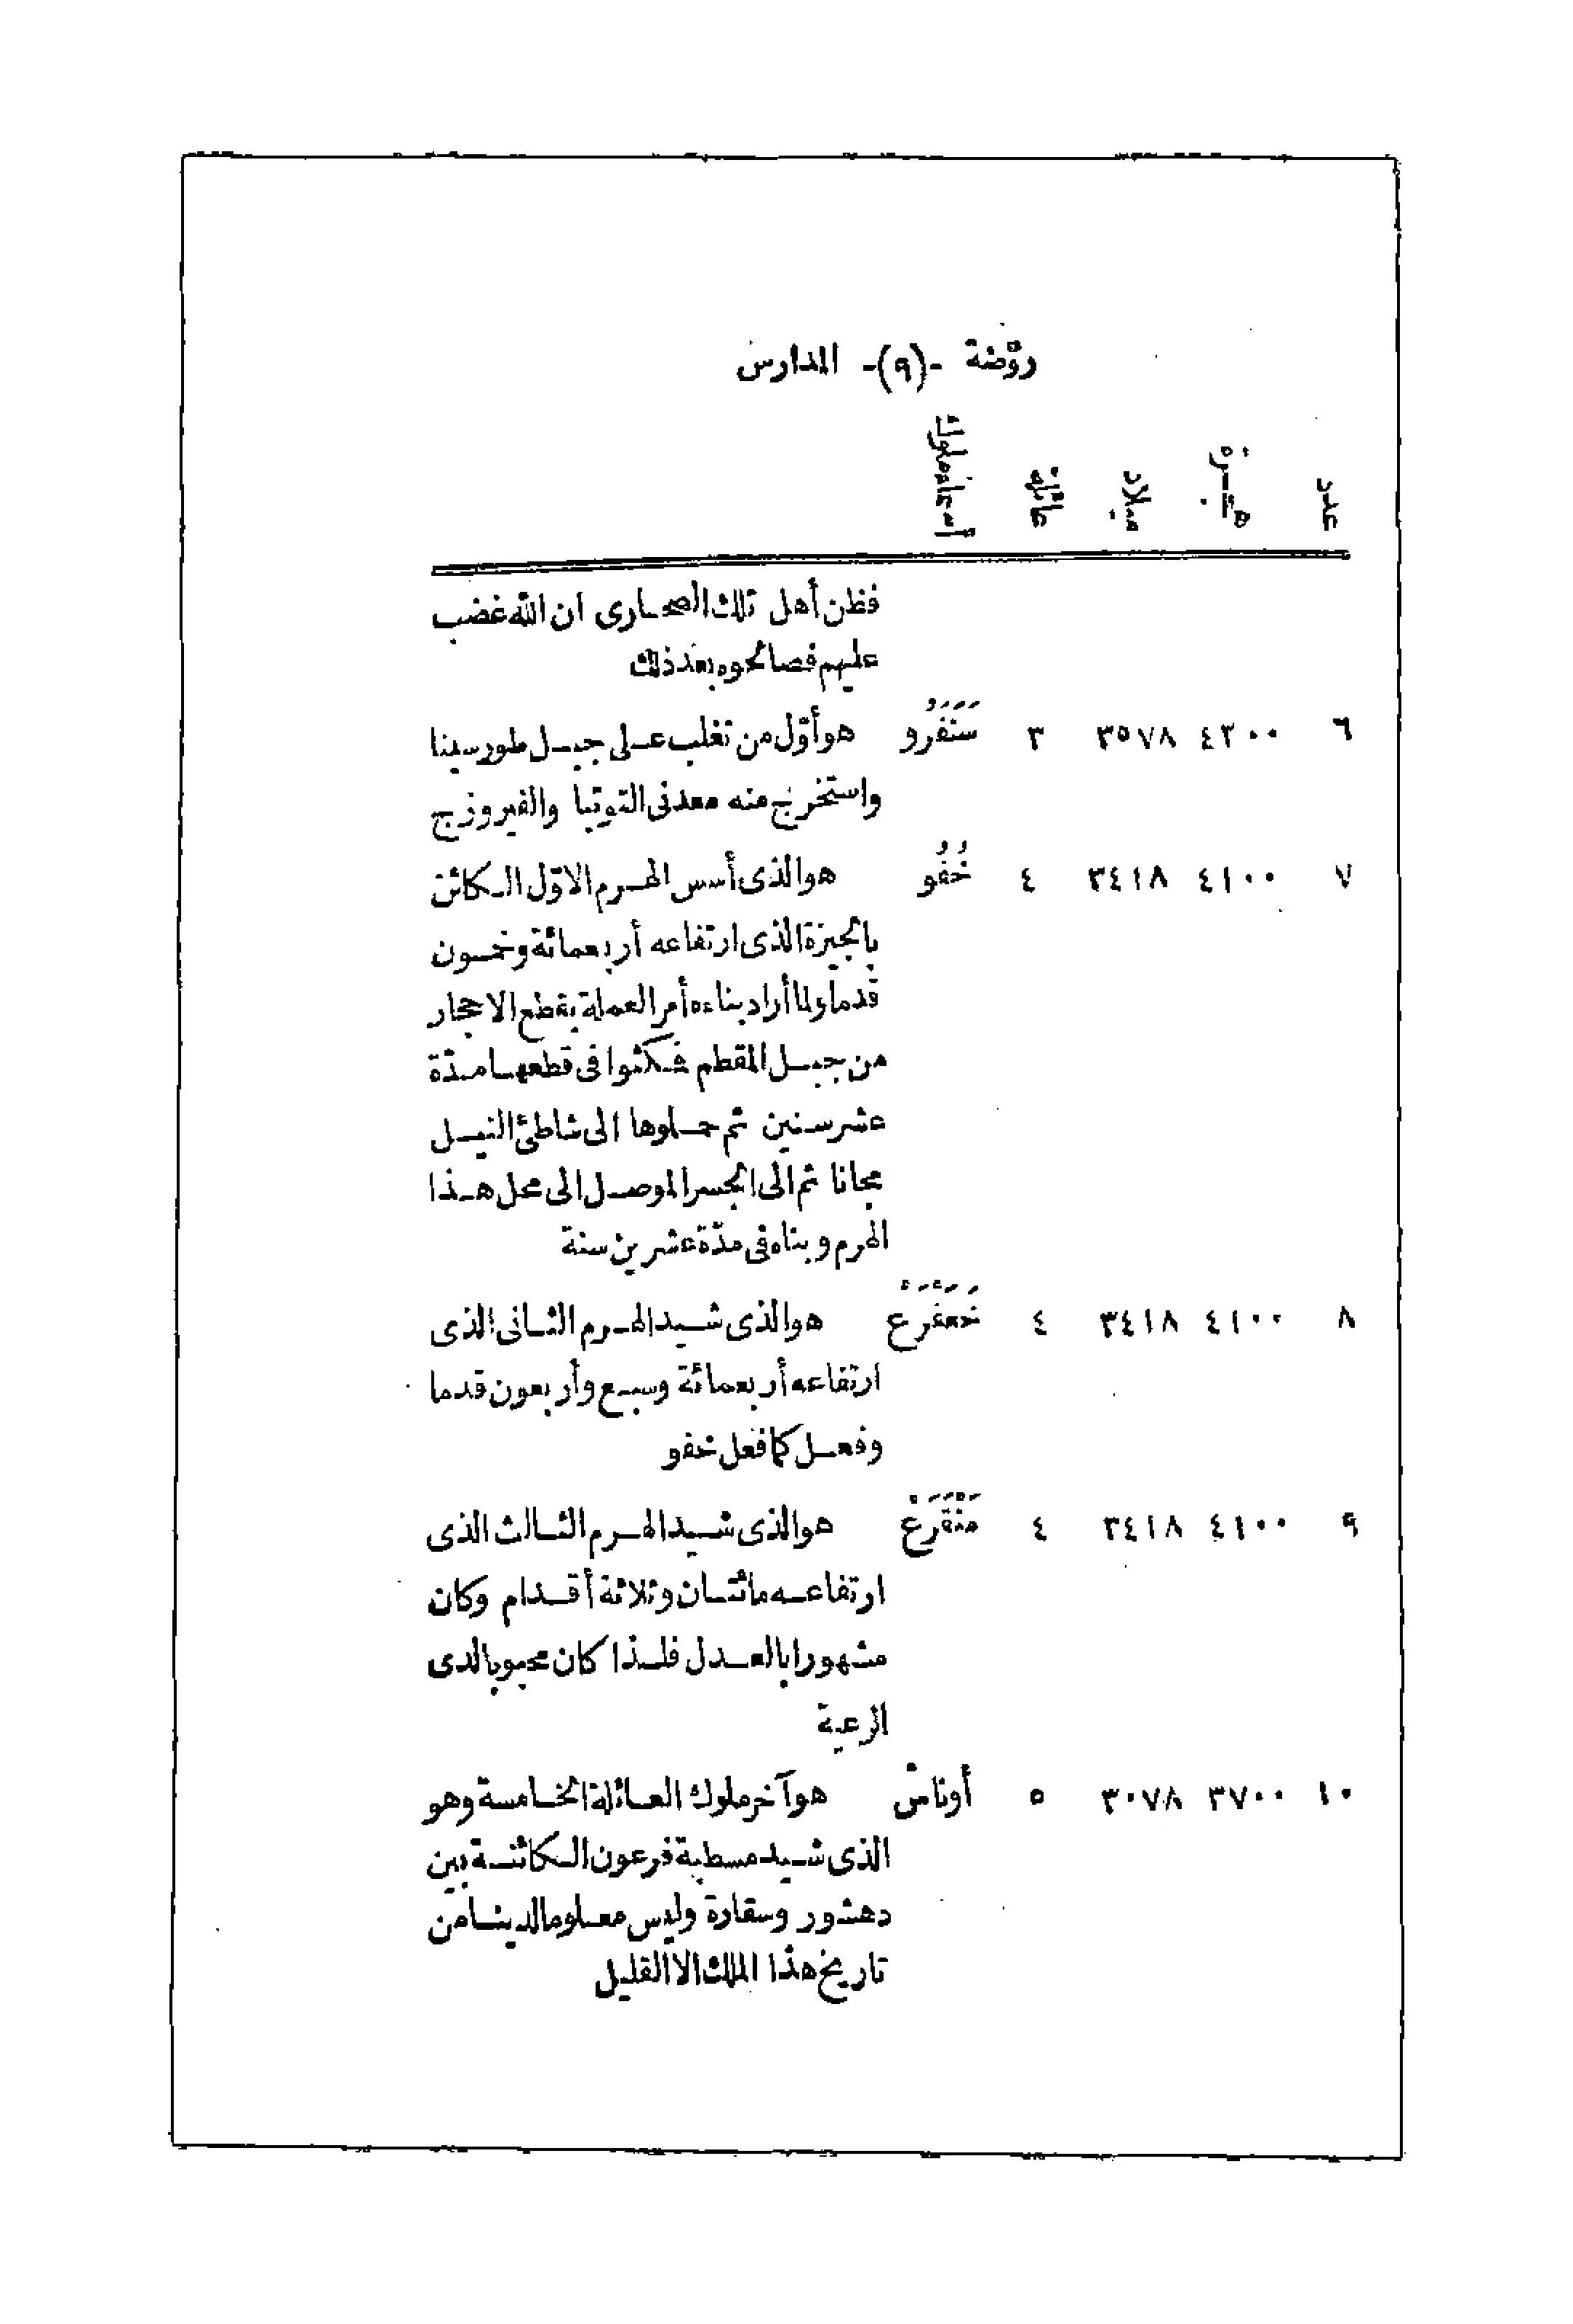 روضة -(٩)- المدارس
عدد هجرة ميلاد عائلة أسماء ملوك
فظن أهل تلك الصحارى ان الله غضب
عليهم فصالحوه بعد ذلك
٦ ٤٢٠٠ ٣٥٧٨ ٣ سَنَفَرُو هو أوّل من تغلب على جبل طورسينا
واستخرج منه معدنى التوتيا والفيروزج
٧ ٤١٠٠ ٣٤١٨ ٤ خُفُو هو الذى أسس الهرم الاوّل الكائن
بالجيزة الذى ارتفاعه أربعمائة وخمسون
قدما ولما أراد بناءه أمر العملة بقطع الاحجار
من جبل المقطم فمكثوا فى قطعها مدّة
عشر سنين ثم حملوها الى شاطئ النيل
مجانا ثم الى الجسر الموصل الى محل هذا
الهرم وبناه فى مدّة عشرين سنة
٨ ٤١٠٠ ٣٤١٨ ٤ خَعَفْرَعْ هو الذى شيد الهرم الثانى الذى
ارتفاعه أربعمائة وسبع وأربعون قدما
وفعل كما فعل خفو
٩ ٤١٠٠ ٣٤١٨ ٤ مَنْقَرَعْ هو الذى شيد الهرم الثالث الذى
ارتفاعه مائتان وثلاثة أقدام وكان
مشهورا بالعدل فلذا كان محبوبا لدى
الرعية
١٠ ٣٧٠٠ ٣٠٧٨ ٥ أوناسْ هو آخر ملوك العائلة الخامسة وهو
الذى شيد مسطبة فرعون الكائنة بين
دهشور وسقارة وليس معلوما لدينا من
تاريخ هذا الملك الا القليل